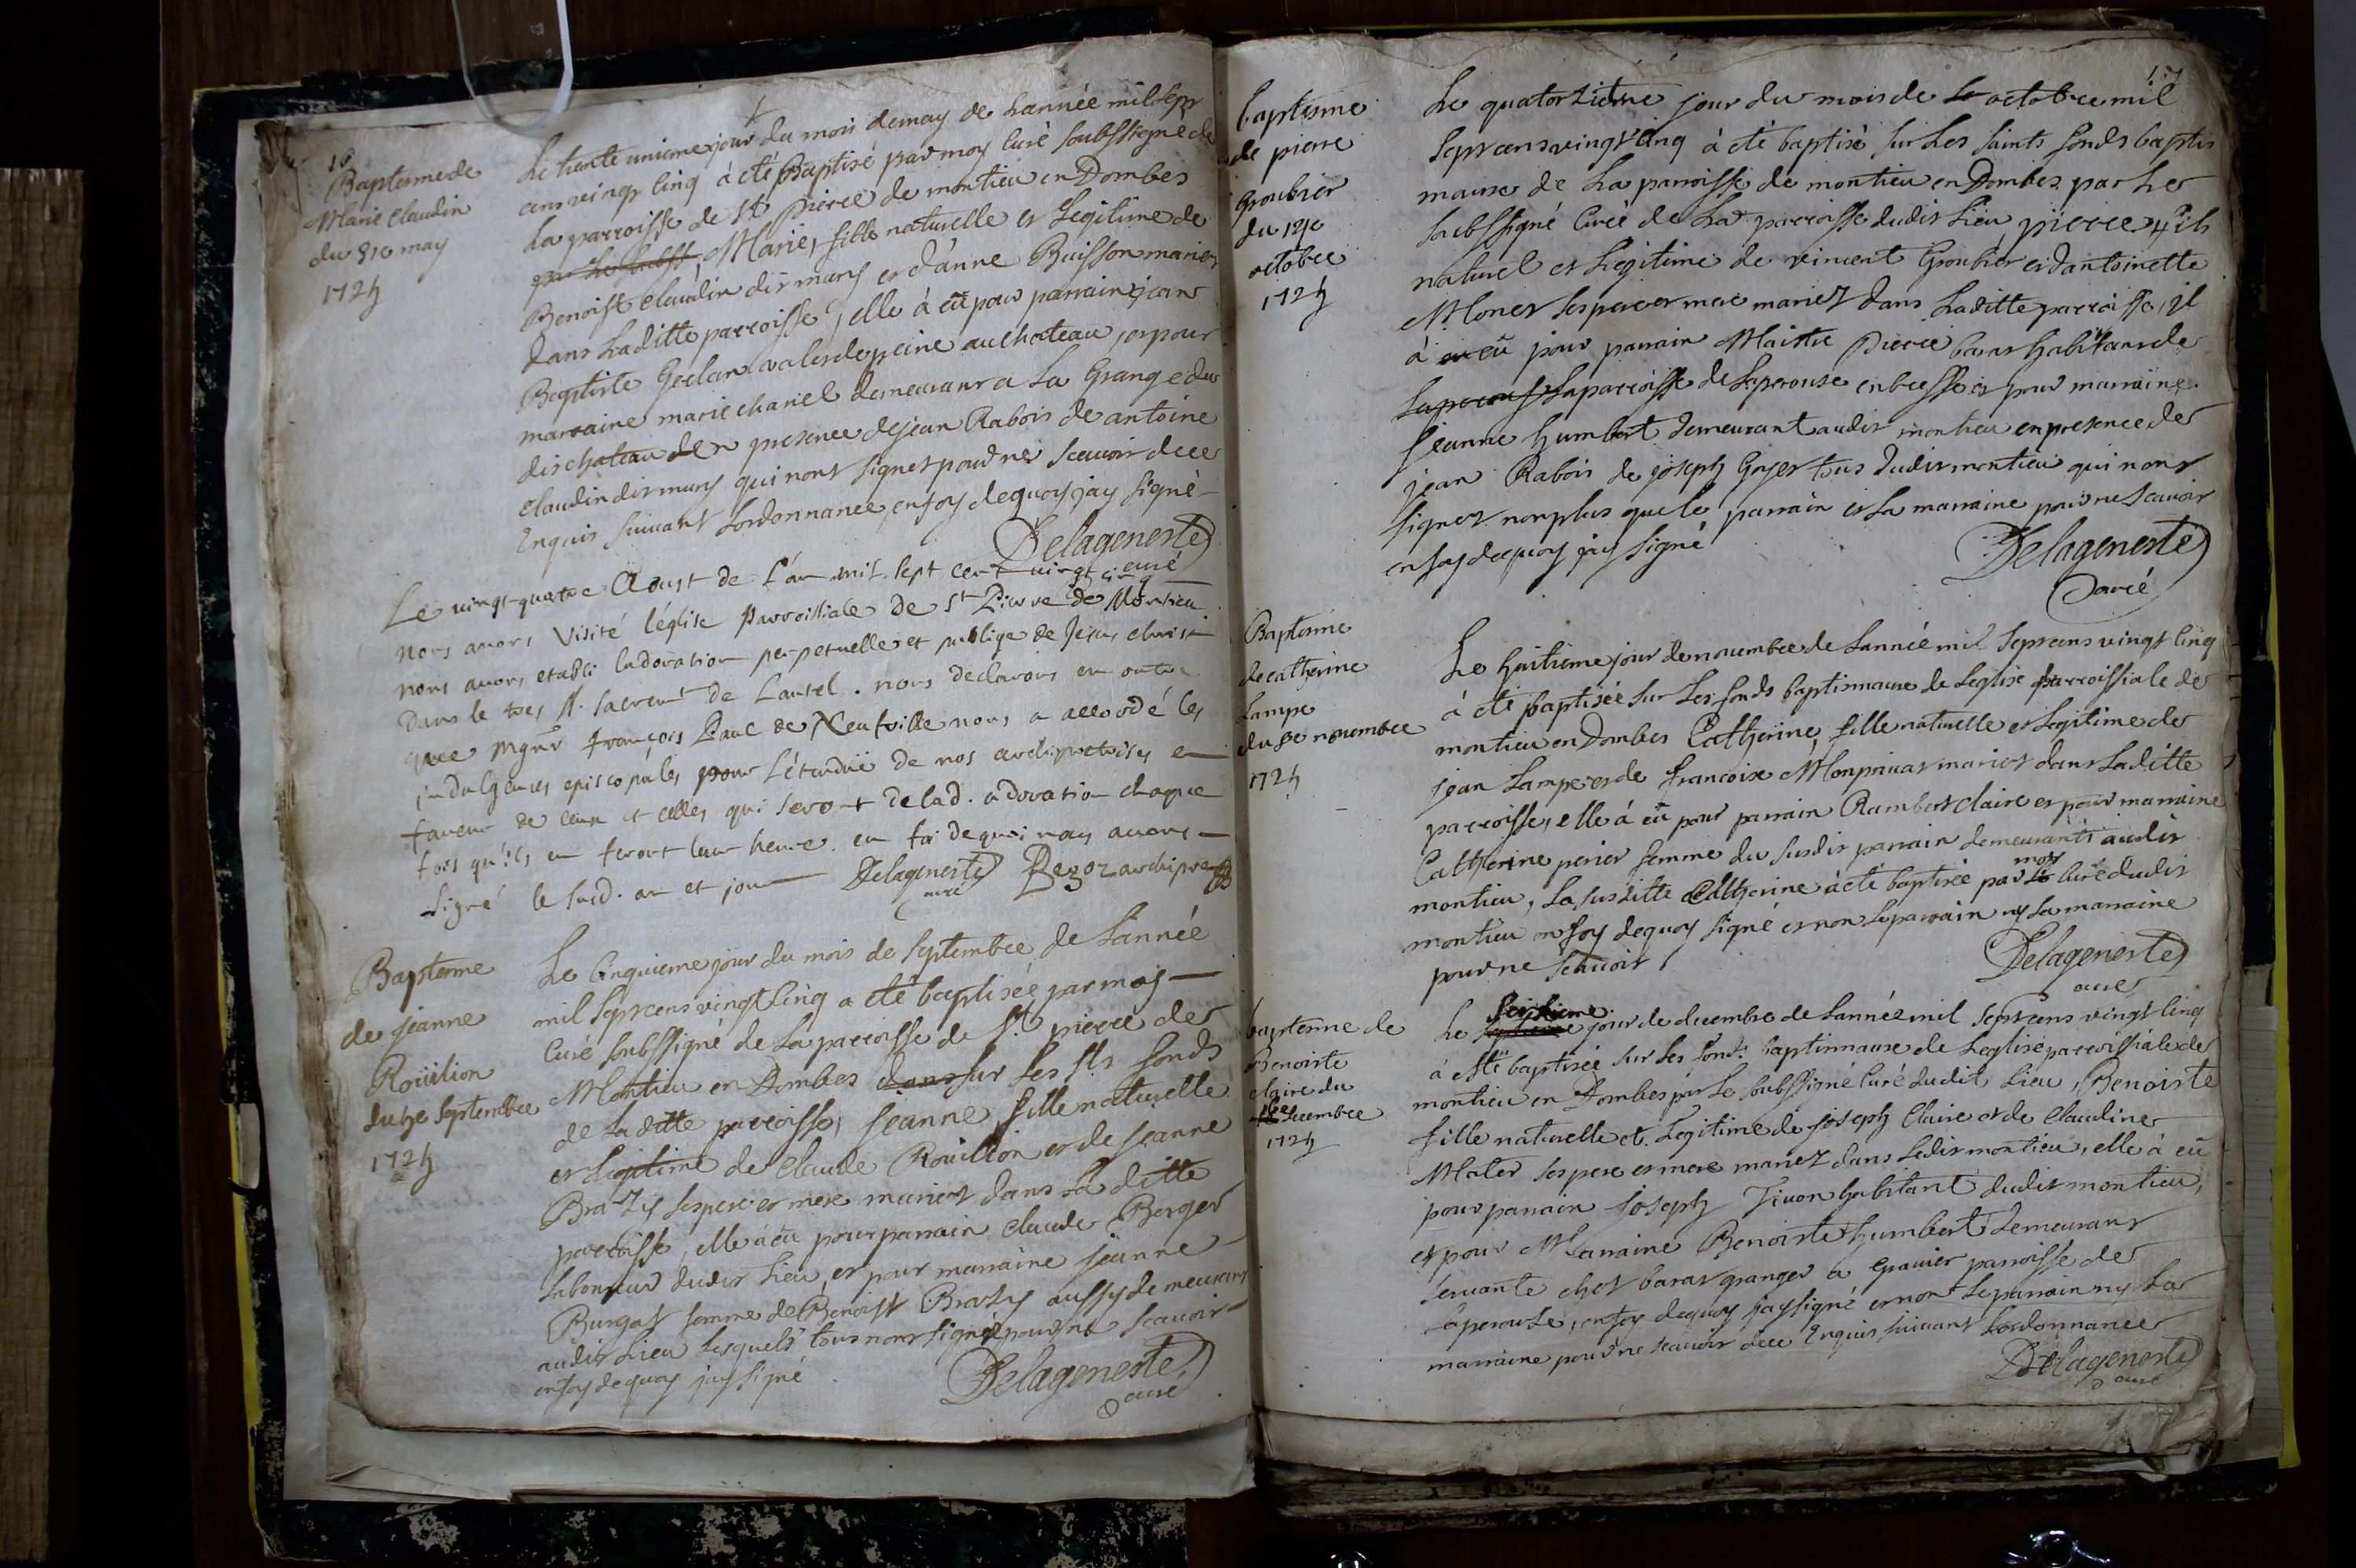 16
Baptesme de
Marie Claudin
du 31e may
1725
Le trente unieme jour du mois de may de Lannée mil sept
cens vingt cinq à été Baptisé par moy curé soubssigné de
La parroisse de St Pierre de montieu en Dombes
par Le soubss Marie, fille naturelle et Legitime de
Benoist Claudin dit muny et d'anne Buisson mariez
dans Laditte parroisse, elle à eü pour parrain jean
Baptiste valet de peine au chateau, et pour
marraine marie chanel demeurant a La Grange du
dit chateau de en presence de jean Rabois de antoine
Claudin dit muny qui nont signez pour ne scauoir de ce
Enquis suiuant Lordonnance, en foy dequoy jay signé
Delageneste
curé
Le vingt-quatre Aoust de L'an mil sept cent vingt cinq
nous avons visité l'église Parroissiale de St Pierre de Montieu
nous avons etabli ladoration perpetuelle et publiqe de Jesus christ
Dans le tres St. sacremt de Lautel. nous declarons en outre
que Mgnr François Paul de Neufville nous a accordé les
indulgences episcopales pour L'étendüe de nos archipretrises en
faveur de ceux et celles qui seront de lad. adoration chaque
fois qu'ils en feront leur heure. en foi dequoi nous avons
signé le susd. an et jour Delageneste Begoz archipretre
curé
Baptesme
de jeanne
Roüilion
du 5e septembre
1725
Le Cinquieme jour du mois de septembre de Lannée
mil sept cens vingt Cinq a eté baptisée par moy
Curé soubssigné de La parroisse de St. pierre de
Montieu en Dombes dans sur Les sts fonds
de La ditte parroisse, jeanne fille naturelle
et Legitime de Claude Roüilion et de jeanne
Brazy ses pere et mere mariez dans La ditte
parroisse, elle à eü pour parrain claude Berger
Laboureur dudit Lieu, et pour marraine jeanne
Burgat femme de Benoist Brazy aussy demeurant
audit Lieu Lesquels tous nont signez pour ne scauoir
en foy de quoy jay signé
Delageneste
curé
17
baptesme
de pierre
Groubier
du 14e
octobre
1725
Le quatorzieme jour du mois de Lo octobre mil
sept cens vingt Cinq à été baptisé sur Les saints fonds baptis
maux de La parroisse de montieu en Dombes par Le
soubssigné Curé de La parroisse dudit Lieu pierre fils
naturel et Legitime de vincent Groubier et dantoinette
Monet ses pere et mere mariez dans Laditte parroisse, il
à eu eü pour parrain Maistre Pierre baras habitant de
Laperous La parroisse de Laperouse en bresse et pour marraine
jeanne humbert demeurant audit montieu en presence de
jean Rabois de joseph Goyet tous dudit montieu qui nont
signez non plus que le parrain et La marraine pour ne scauoir
en foy de quoy jay signé
Delageneste
Curé
Baptesme
de catherine
Lampe
du 8e nouembre
1725
Le huitieme jour de nouembre de Lannée mil sept cens vingt Cinq
à été baptisée sur Les fonds baptismaux de Leglise parroissiale de
montieu en Dombes Catherine, fille naturelle et Legitime de
jean Lampe et de francoise Monpriuat mariez dans Laditte
parroisse, elle à eü pour parrain Rambert claire et pour marraine
Catherine perier femme du susdit parrain demeurants audit
montieu, La susditte Catherine à été baptisée par Le moy Curé dudit
montieu en foy dequoy signé et non Le parrain ny La marraine
pour ne scauoir
Delageneste
curé
baptesme de
Benoiste
claire du
16e decembre
1725
Le seizieme jour de decembre de Lannée mil sept cens vingt Cinq
à esté baptisée sur Les fonds baptismaux de Leglise parroissiale de
montieu en Dombes par Le soubssigné Curé dudit Lieu, Benoiste
fille naturelle et Legitime de joseph Claire et de Claudine
Mater ses pere et mere mariez dans Ledit montieu, elle à eü
pour parrain joseph Tiuon habitant dudit montieu,
et pour Marraine Benoiste humbert demeurant
seruante chez baras granger a Grauier parroisse de
Laperouze, en foy dequoy jay signé et non Le parrain ny La
marraine pour ne scauoir de ce Enquis suiuant Lordonnance
Delageneste
curé